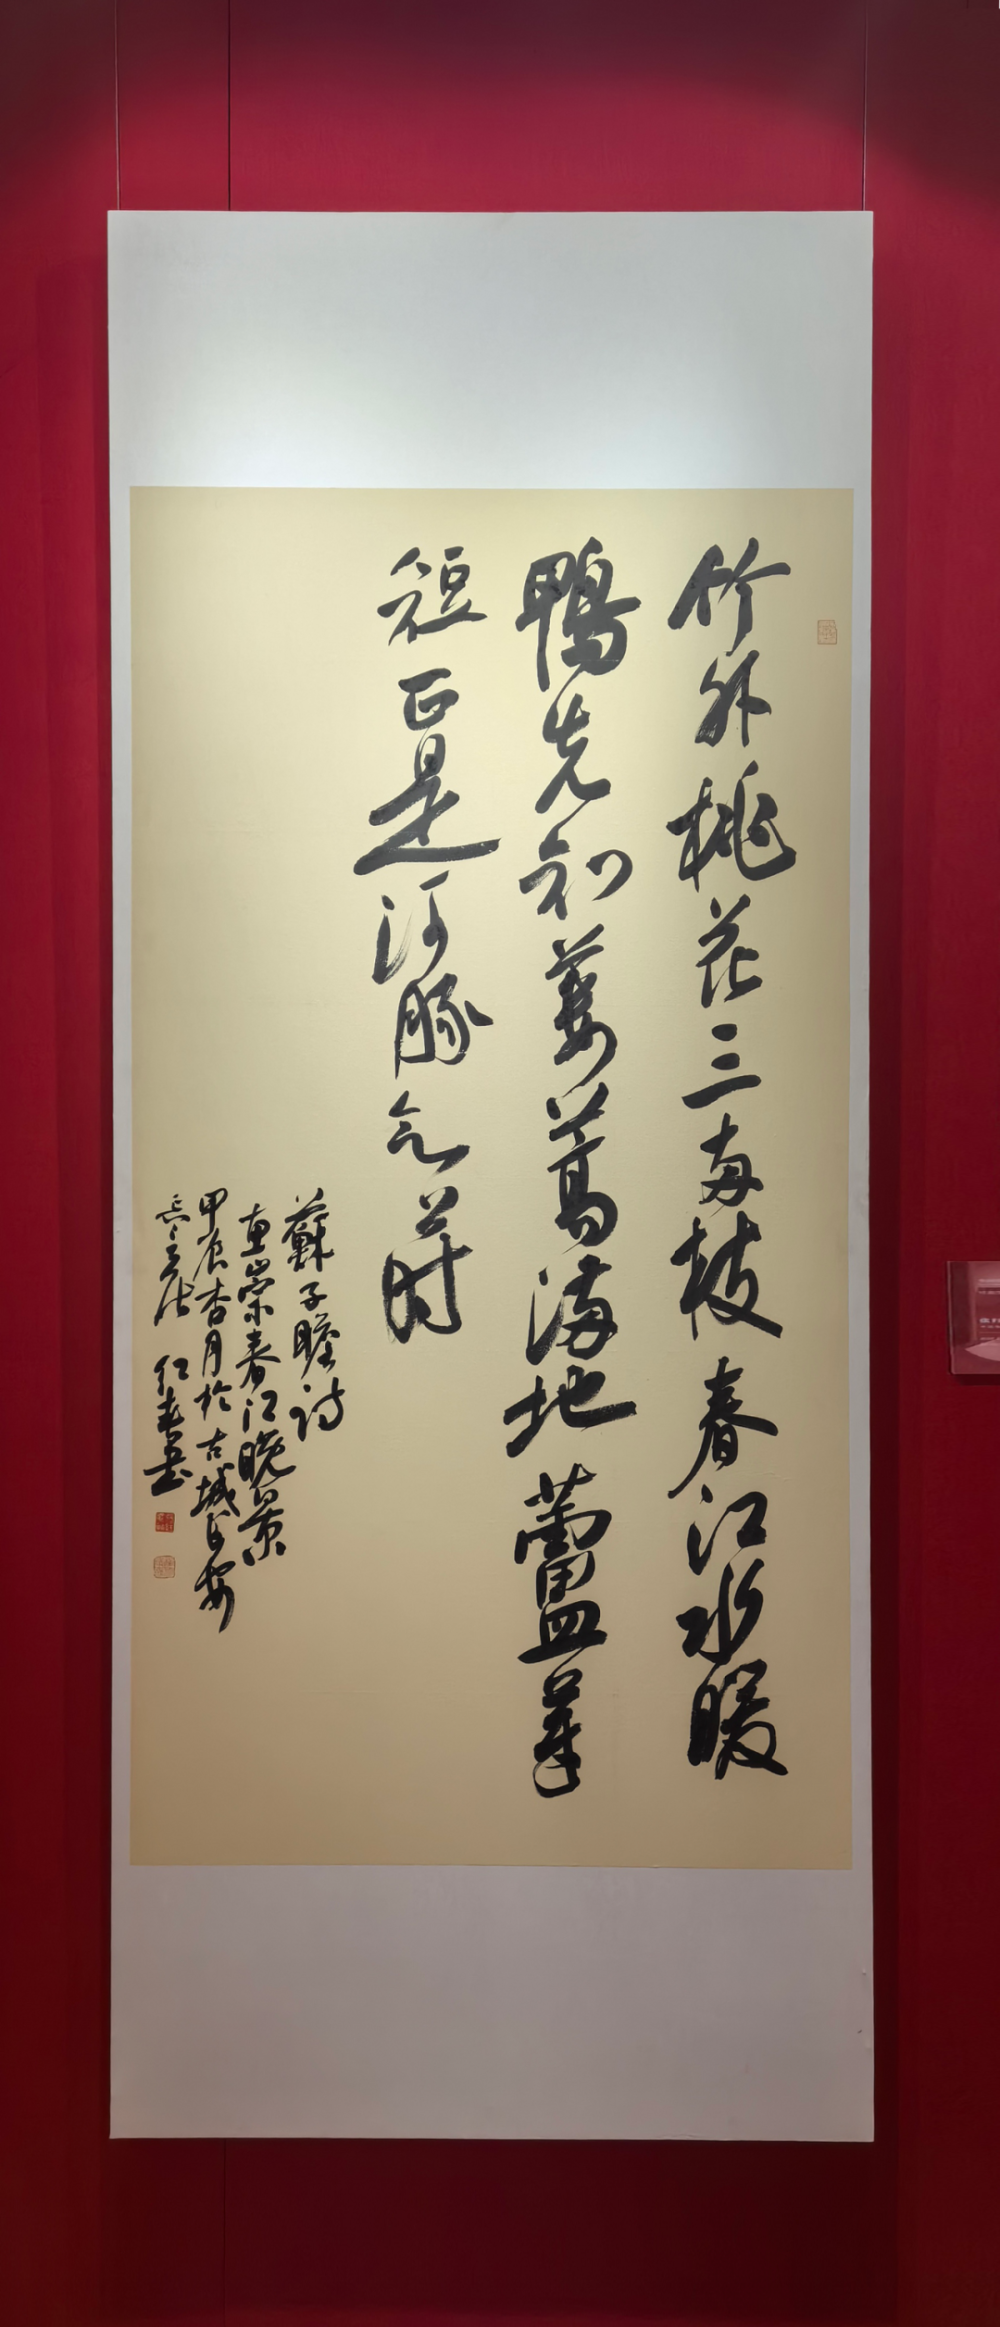 竹外桃花三兩枝春江水暖
鴨先知蔞蒿滿地蘆芽
短正是河豚欲上时
蘇子瞻詩
惠崇春江晚景
甲辰杏月於古城长安
红春书